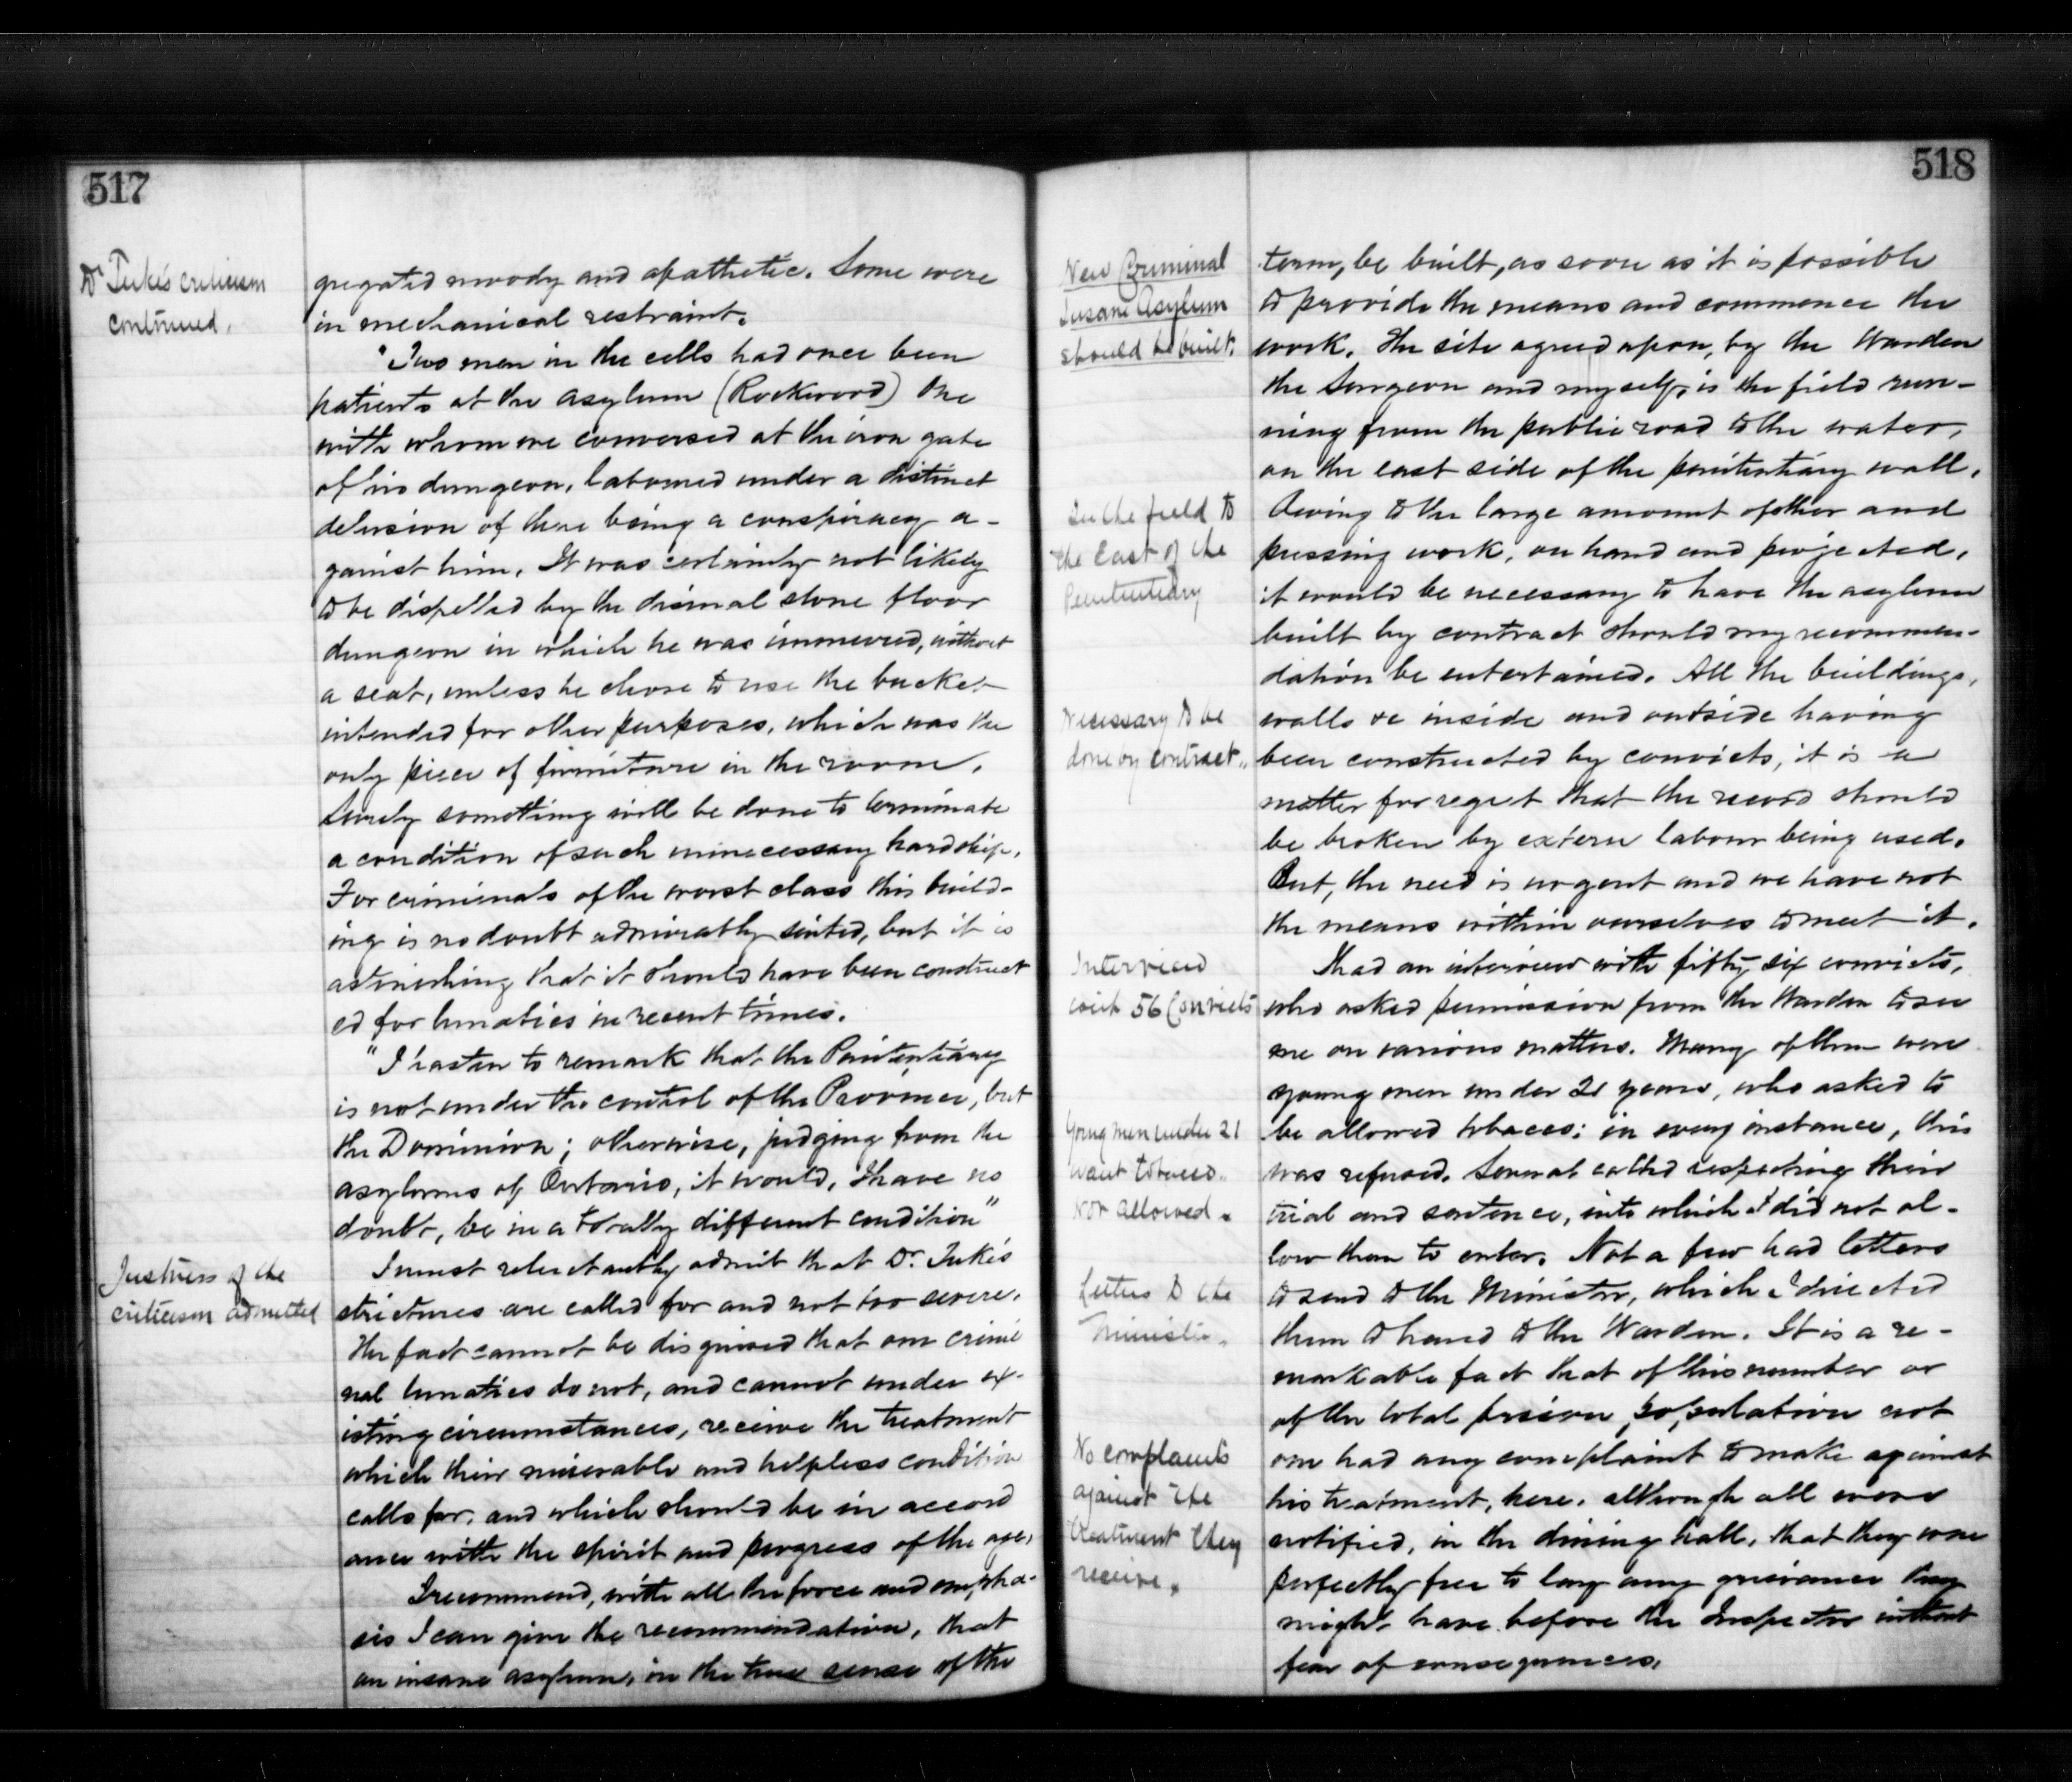 517
Dr Tuke's criticism
continued.
gregated moody and apathetic. Some were
in mechanical restraint.
"Two men in the cells had once been
patients at the asylum (Rockwood) One
with whom we conversed at the iron gate
of his dungeon, laboured under a distinct
delusion of there being a conspiracy a-
gainst him. It was certainly not likely
to be dispelled by the dismal stone floor
dungeon in which he was immured, without
a seat, unless he chose to use the bucket
intended for other purposes, which was the
only piece of furniture in the room.
Surely something will be done to terminate
a condition of such unnecessary hardship.
For criminals of the worst class this build-
ing is no doubt admirably suited, but it is
astonishing that it should have been construct
ed for lunatics in recent times.
"I hasten to remark that the Penitentiary
is not under the control of the Province, but
the Dominion; otherwise, judging from the
asylums of Ontario, it would, I have no
doubt, be in a totally different condition"
Justness of the
criticism admitted
I must reluctantly admit that Dr. Tuke's
strictures are called for and not too severe.
The fact cannot be disguised that our crimi
nal lunatics do not, and cannot under ex-
isting circumstances, receive the treatment
which their miserable and helpless condition
calls for, and which should be in accord
ance with the spirit and progress of the age.
I recommend, with all the force and empha-
sis I can give the recommendation, that
an insane asylum, in the true sense of the
518
New Criminal
Insane Asylum
should be built.
term, be built, as soon as it is possible
to provide the means and commence the
work. The site agreed upon, by the Warden
the Surgeon and myself, is the field run-
ning from the public road to the water,
on the east side of the penitentiary wall.
In the field to
the East of the
Penitentiary
Owing to the large amount of other and
pressing work, on hand and projected,
it would be necessary to have the asylum
built by contract should my recommen-
dation be entertained. All the buildings,
Necessary to be
done by contract.
walls &c inside and outside having
been constructed by convicts, it is a
matter for regret that the record should
be broken by extern labour being used.
But, the need is urgent and we have not
the means within ourselves to meet it.
Interview
with 56 Convicts
I had an interview with fifty six convicts,
who asked permission from the Warden to see
me on various matters. Many of them were
young men under 21 years, who asked to
Young men under 21
want tobacco.
Not allowed.
be allowed tobacco: in every instance, this
was refused. Several called respecting their
trial and sentence, into which I did not al-
low them to enter. Not a few had letters
Letters to the
Minister.
to send to the Minister, which I directed
them to hand to the Warden. It is a re-
markable fact that of this number or
of the total prison population not
No complaints
against the
treatment they
receive.
one had any complaint to make against
his treatment, here, although all were
notified, in the dining hall, that they were
perfectly free to lay any grievance they
might have before the Inspector without
fear of consequences.